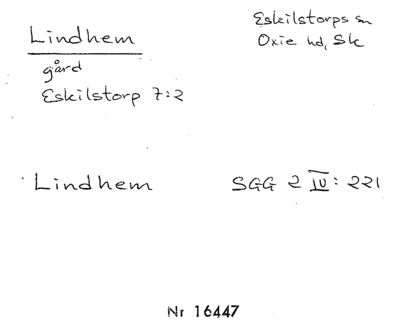 Lindhem
Eskilstorps sn
Oxie hd, Sk
gård
Eskilstorp 7:2
Lindhem SGG 2 IV: 221
Nr 16447